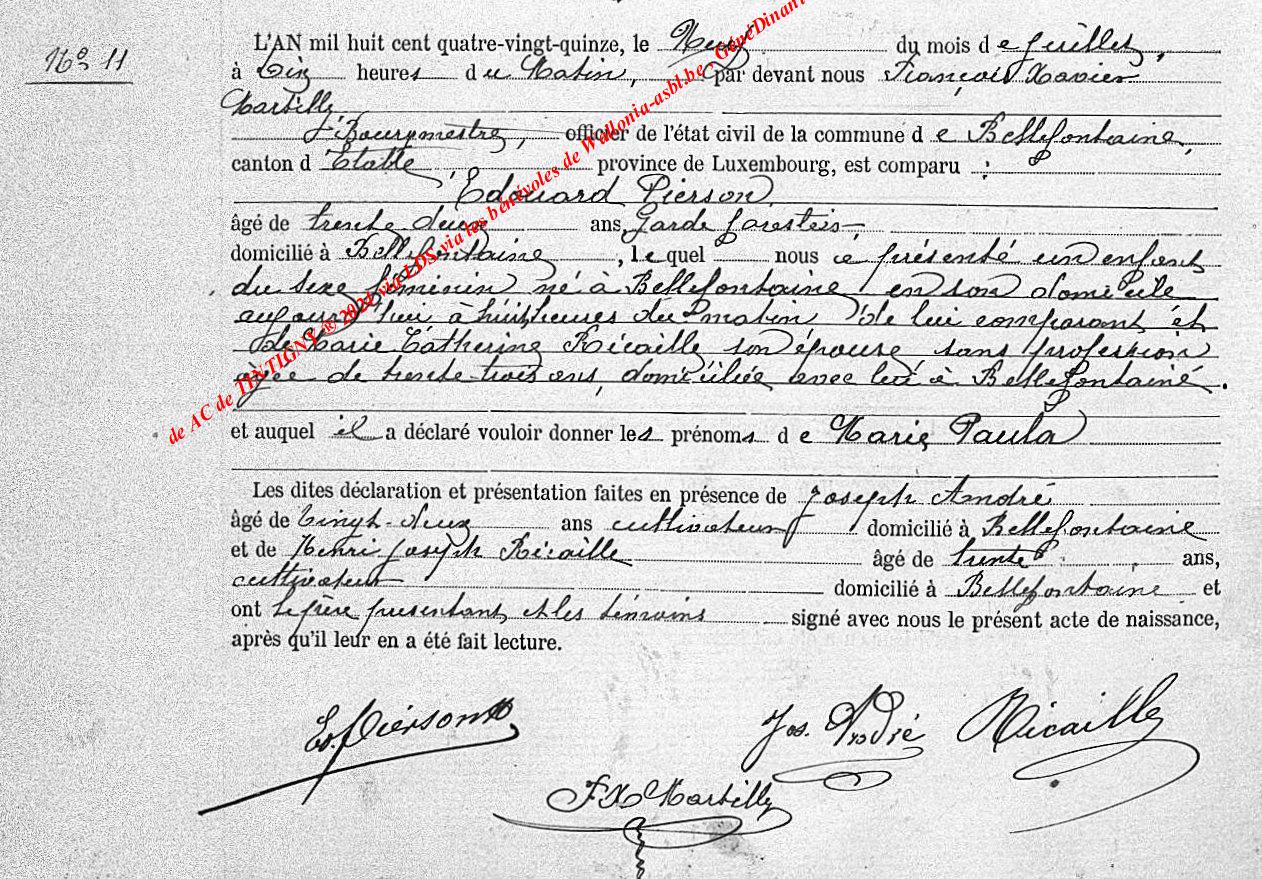 N° 11
L'AN mil huit cent quatre-vingt-quinze, le Neuf du mois de Juillet,
à Dix heures du Matin, par devant nous François Xavier
Marbilly
Bourgmestre, officier de l'état civil de la commune de Bellefontaine,
canton d'Etalle, province de Luxembourg, est comparu :
Edouard Pierson
âgé de trente deux ans, Garde forestier,
domicilié à Bellefontaine, lequel nous a présenté un enfant
du sexe féminin né à Bellefontaine en son domicile
aujourd'hui à huit heures du matin de lui comparant et
de Marie Catherine Ricaille son épouse, sans profession
âgée de trente-trois ans, domiciliée avec lui à Bellefontaine.
et auquel il a déclaré vouloir donner les prénoms de Marie Paula
Les dites déclaration et présentation faites en présence de Joseph André
âgé de Vingt-deux ans cultivateur domicilié à Bellefontaine
et de Henri Joseph Ricaille âgé de trente ans,
cultivateur domicilié à Bellefontaine et
ont le père présentant et les témoins signé avec nous le présent acte de naissance,
après qu'il leur en a été fait lecture.
Ed. Pierson
Jos. André
Ricaille
F X Marbilly
de AC de TINTIGNY ® 2024 via LDS via les bénévoles de Wallonia-asbl.be - GénéDinant